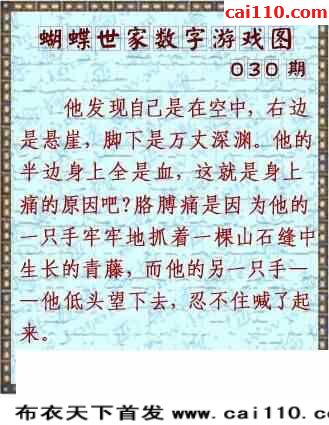 cai110.com
蝴蝶世家数字游戏图
030期
他发现自己是在空中，右边
是悬崖，脚下是万丈深渊。他的
半边身上全是血，这就是身上
痛的原因吧?胳膊痛是因为他的
一只手牢牢地抓着一棵山石缝中
生长的青藤，而他的另一只手—
—他低头望下去，忍不住喊了起
来。
布衣天下首发 www.cai110.co